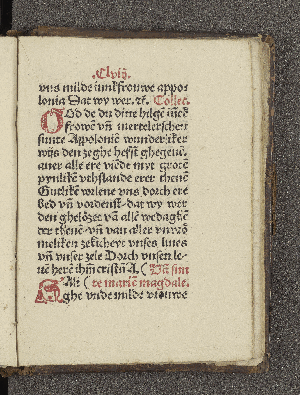 Clvij.
vns milde iunkfrouwe appo-
lonia Dat wy wer. ꝛc. Collec.
GOd de du dine hilgē iūck
frowē vn̄ mertelerschen
sunte Appoloniē wunderliker
wijs den zeghe hefft ghegeuē.
auer alle ere viēde myt grotē
pynlikē vthstande erer thenē
Gutlikē vorlene vns dorch ere
bed vn̄ vordenst dat wy wer
den ghelözet vā allē wedaghē
der thenē vn̄ van aller vnvor
meliken zekichert vnses liues
vn̄ vnser zele Dorch vnsen le-
uē herē ihm̄ cristū A. ( Vā sun
Ait ( te mariē magdale.
AGhe vnde milde vrouwe